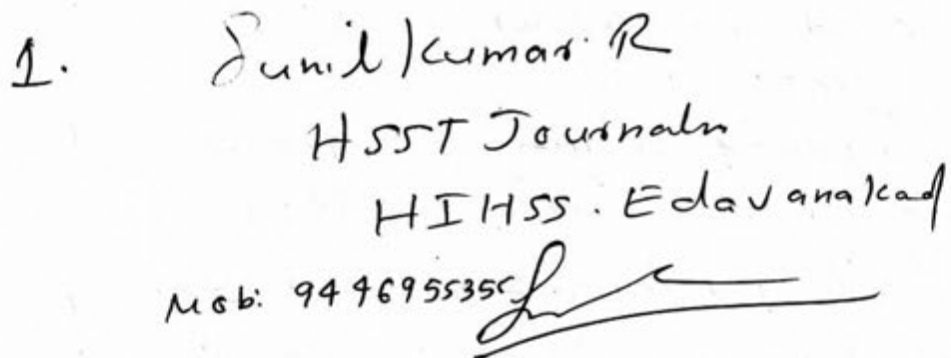 1. Sunil Kumar. R
HSST Journalm
HIHSS. Edavanakad
Mob: 9446955355